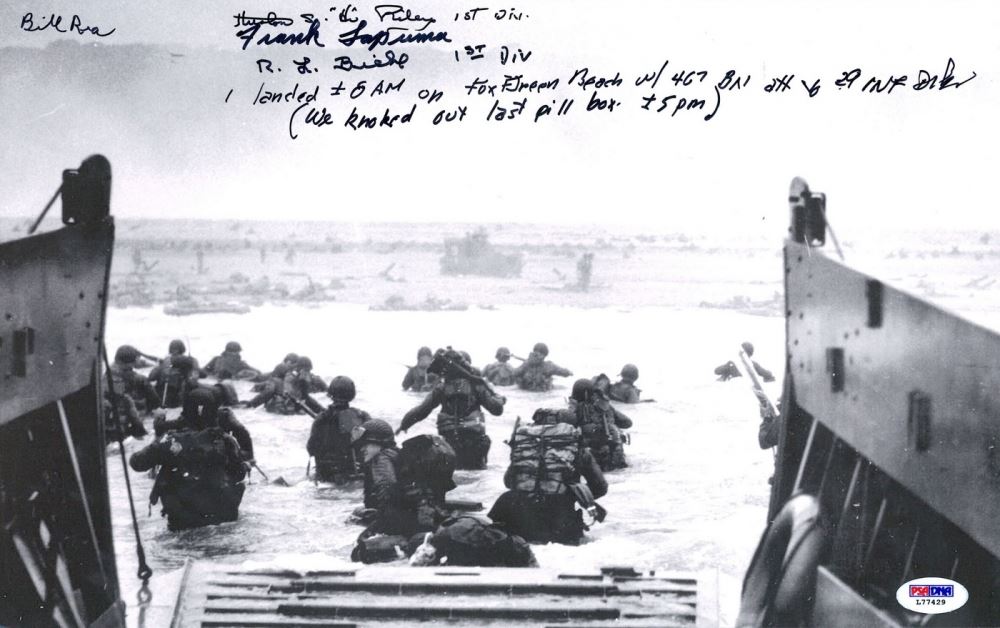 Bill Rra
S. "Hi" Riley 1ST Div.
Frank Lapuma
R. L. 1ST Div
I landed ± 8 AM on Fox Green Beach w/ 467 BN att to 29 INF
(We knoked out last pill box ± 5 pm)
PSA DNA
L77429